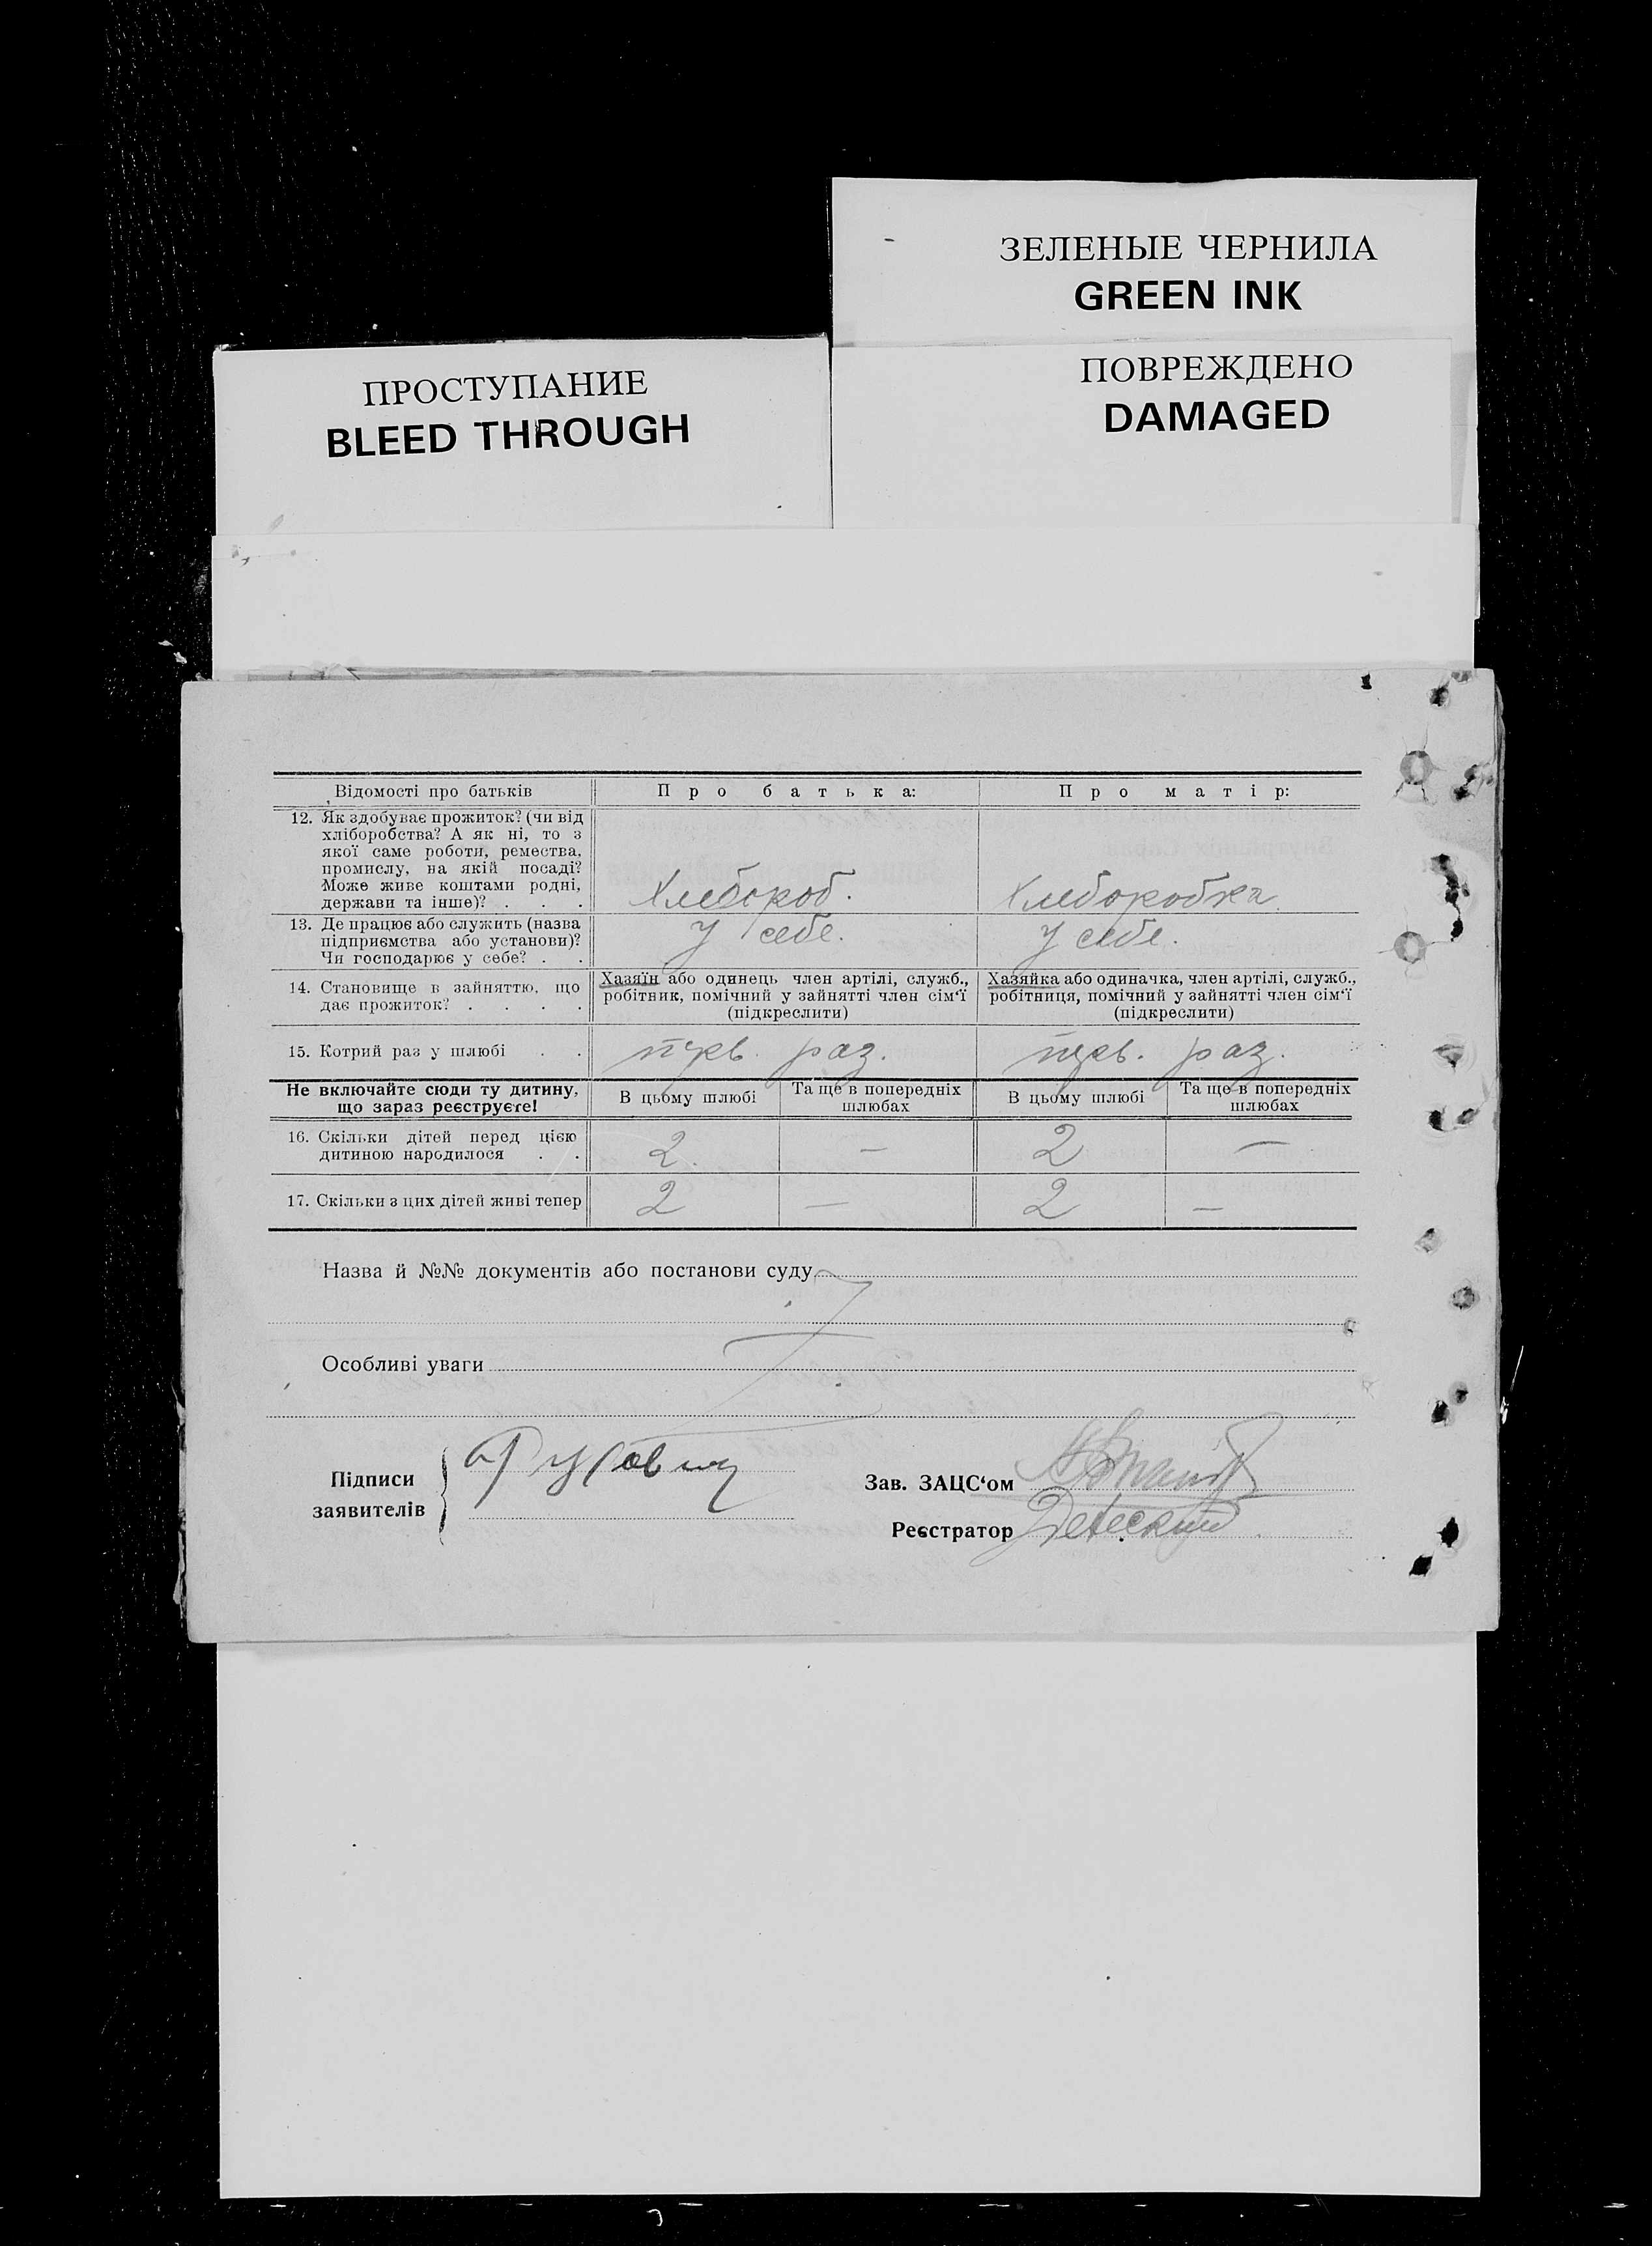 ЗЕЛЕНЫЕ ЧЕРНИЛА
GREEN INK
ПРОСТУПАНИЕ
BLEED THROUGH
ПОВРЕЖДЕНО
DAMAGED
Відомості про батьків Про батька: Про матір:
12. Як здобуває прожиток? (чи від
хліборобства? А як ні, то з
якої саме роботи, ремества,
промислу, на якій посаді?
Може живе коштами родні,
держави та інше)? . . .
Хлебороб. Хлеборобка.
13. Де працює або служить (назва
підприємства або установи)?
Чи господарює у себе? . .
у себе. у себе.
14. Становище в зайняттю, що
дає прожиток? . . . .
Хазяїн або одинець член артілі, служб.,
робітник, помічний у зайнятті член сім‘ї
(підкреслити)
Хазяйка або одиначка, член артілі, служб.,
робітниця, помічний у зайнятті член сім‘ї
(підкреслити)
15. Котрий раз у шлюбі . . перв. раз. перв. раз.
Не включайте сюди ту дитину,
що зараз реєструєте!
В цьому шлюбі
Та ще в попередніх
шлюбах
В цьому шлюбі
Та ще в попередніх
шлюбах
16. Скільки дітей перед цією
дитиною народилося . .
2. — 2 —
17. Скільки з цих дітей живі тепер 2 — 2 —
Назва й №№ документів або постанови суду
Особливі уваги
Підписи
заявителів
Зав. ЗАЦС‘ом
Реєстратор